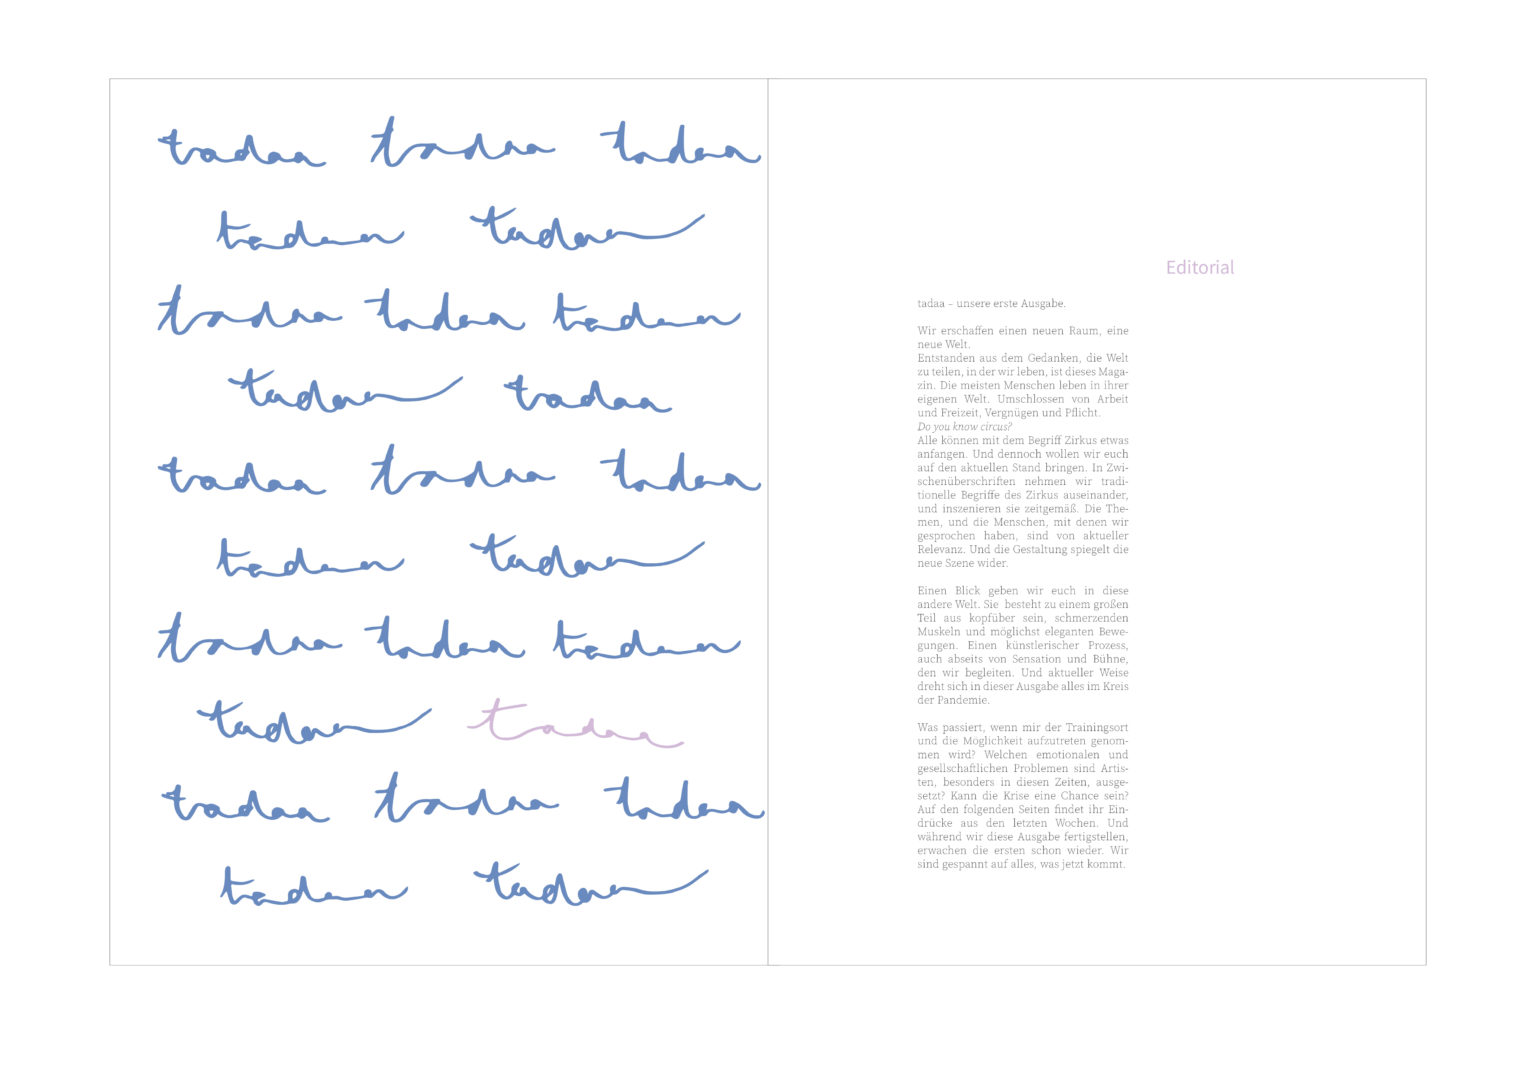 tadaa tadaa tadaa
tadaa tadaa
tadaa tadaa tadaa
tadaa tadaa
tadaa tadaa tadaa
tadaa tadaa
tadaa tadaa tadaa
tadaa tadaa
tadaa tadaa tadaa
tadaa tadaa
Editorial
tadaa – unsere erste Ausgabe.
Wir erschaffen einen neuen Raum, eine
neue Welt.
Entstanden aus dem Gedanken, die Welt
zu teilen, in der wir leben, ist dieses Maga-
zin. Die meisten Menschen leben in ihrer
eigenen Welt. Umschlossen von Arbeit
und Freizeit, Vergnügen und Pflicht.
Do you know circus?
Alle können mit dem Begriff Zirkus etwas
anfangen. Und dennoch wollen wir euch
auf den aktuellen Stand bringen. In Zwi-
schenüberschriften nehmen wir tradi-
tionelle Begriffe des Zirkus auseinander,
und inszenieren sie zeitgemäß. Die The-
men, und die Menschen, mit denen wir
gesprochen haben, sind von aktueller
Relevanz. Und die Gestaltung spiegelt die
neue Szene wider.
Einen Blick geben wir euch in diese
andere Welt. Sie besteht zu einem großen
Teil aus kopfüber sein, schmerzenden
Muskeln und möglichst eleganten Bewe-
gungen. Einen künstlerischer Prozess,
auch abseits von Sensation und Bühne,
den wir begleiten. Und aktueller Weise
dreht sich in dieser Ausgabe alles im Kreis
der Pandemie.
Was passiert, wenn mir der Trainingsort
und die Möglichkeit aufzutreten genom-
men wird? Welchen emotionalen und
gesellschaftlichen Problemen sind Artis-
ten, besonders in diesen Zeiten, ausge-
setzt? Kann die Krise eine Chance sein?
Auf den folgenden Seiten findet ihr Ein-
drücke aus den letzten Wochen. Und
während wir diese Ausgabe fertigstellen,
erwachen die ersten schon wieder. Wir
sind gespannt auf alles, was jetzt kommt.